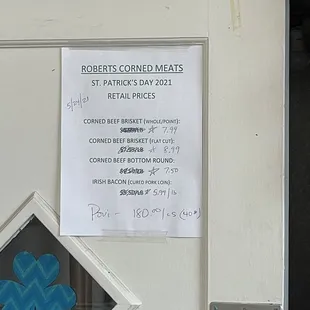 ROBERTS CORNED MEATS
ST. PATRICK'S DAY 2021
RETAIL PRICES
CORNED BEEF BRISKET (WHOLE/POINT):
☆ 7.99
CORNED BEEF BRISKET (FLAT CUT):
☆ 8.99
CORNED BEEF BOTTOM ROUND:
☆ 7.50
IRISH BACON (CURED PORK LOIN):
☆ 5.99/lb
180.00/cs. (40#)